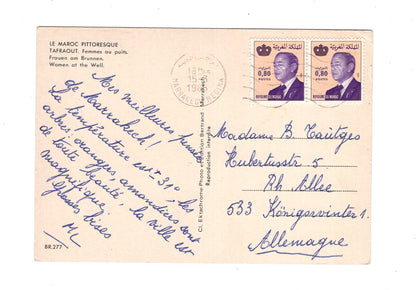 LE MAROC PITTORESQUE
TAFRAOUT. Femmes au puits.
Frauen am Brunnen.
Women at the Well.
Mes meilleures pensées
de Marrakech!
La température est + 31°, les
arbres oranges, amandiers sont
de toute beauté, la ville est
magnifique.
Grosses bises
BR.277
Cl. Ektachrome Photo Bertrand
Reproduction interdite
18H
15-3
MARRAKECH-MEDINA
المملكة المغربية
0,80
ROYAUME DU MAROC
المملكة المغربية
0,80
ROYAUME DU MAROC
Madame B. Tautges
Hubertusstr 5
Rh. Allee
533 Königswinter 1.
Allemagne